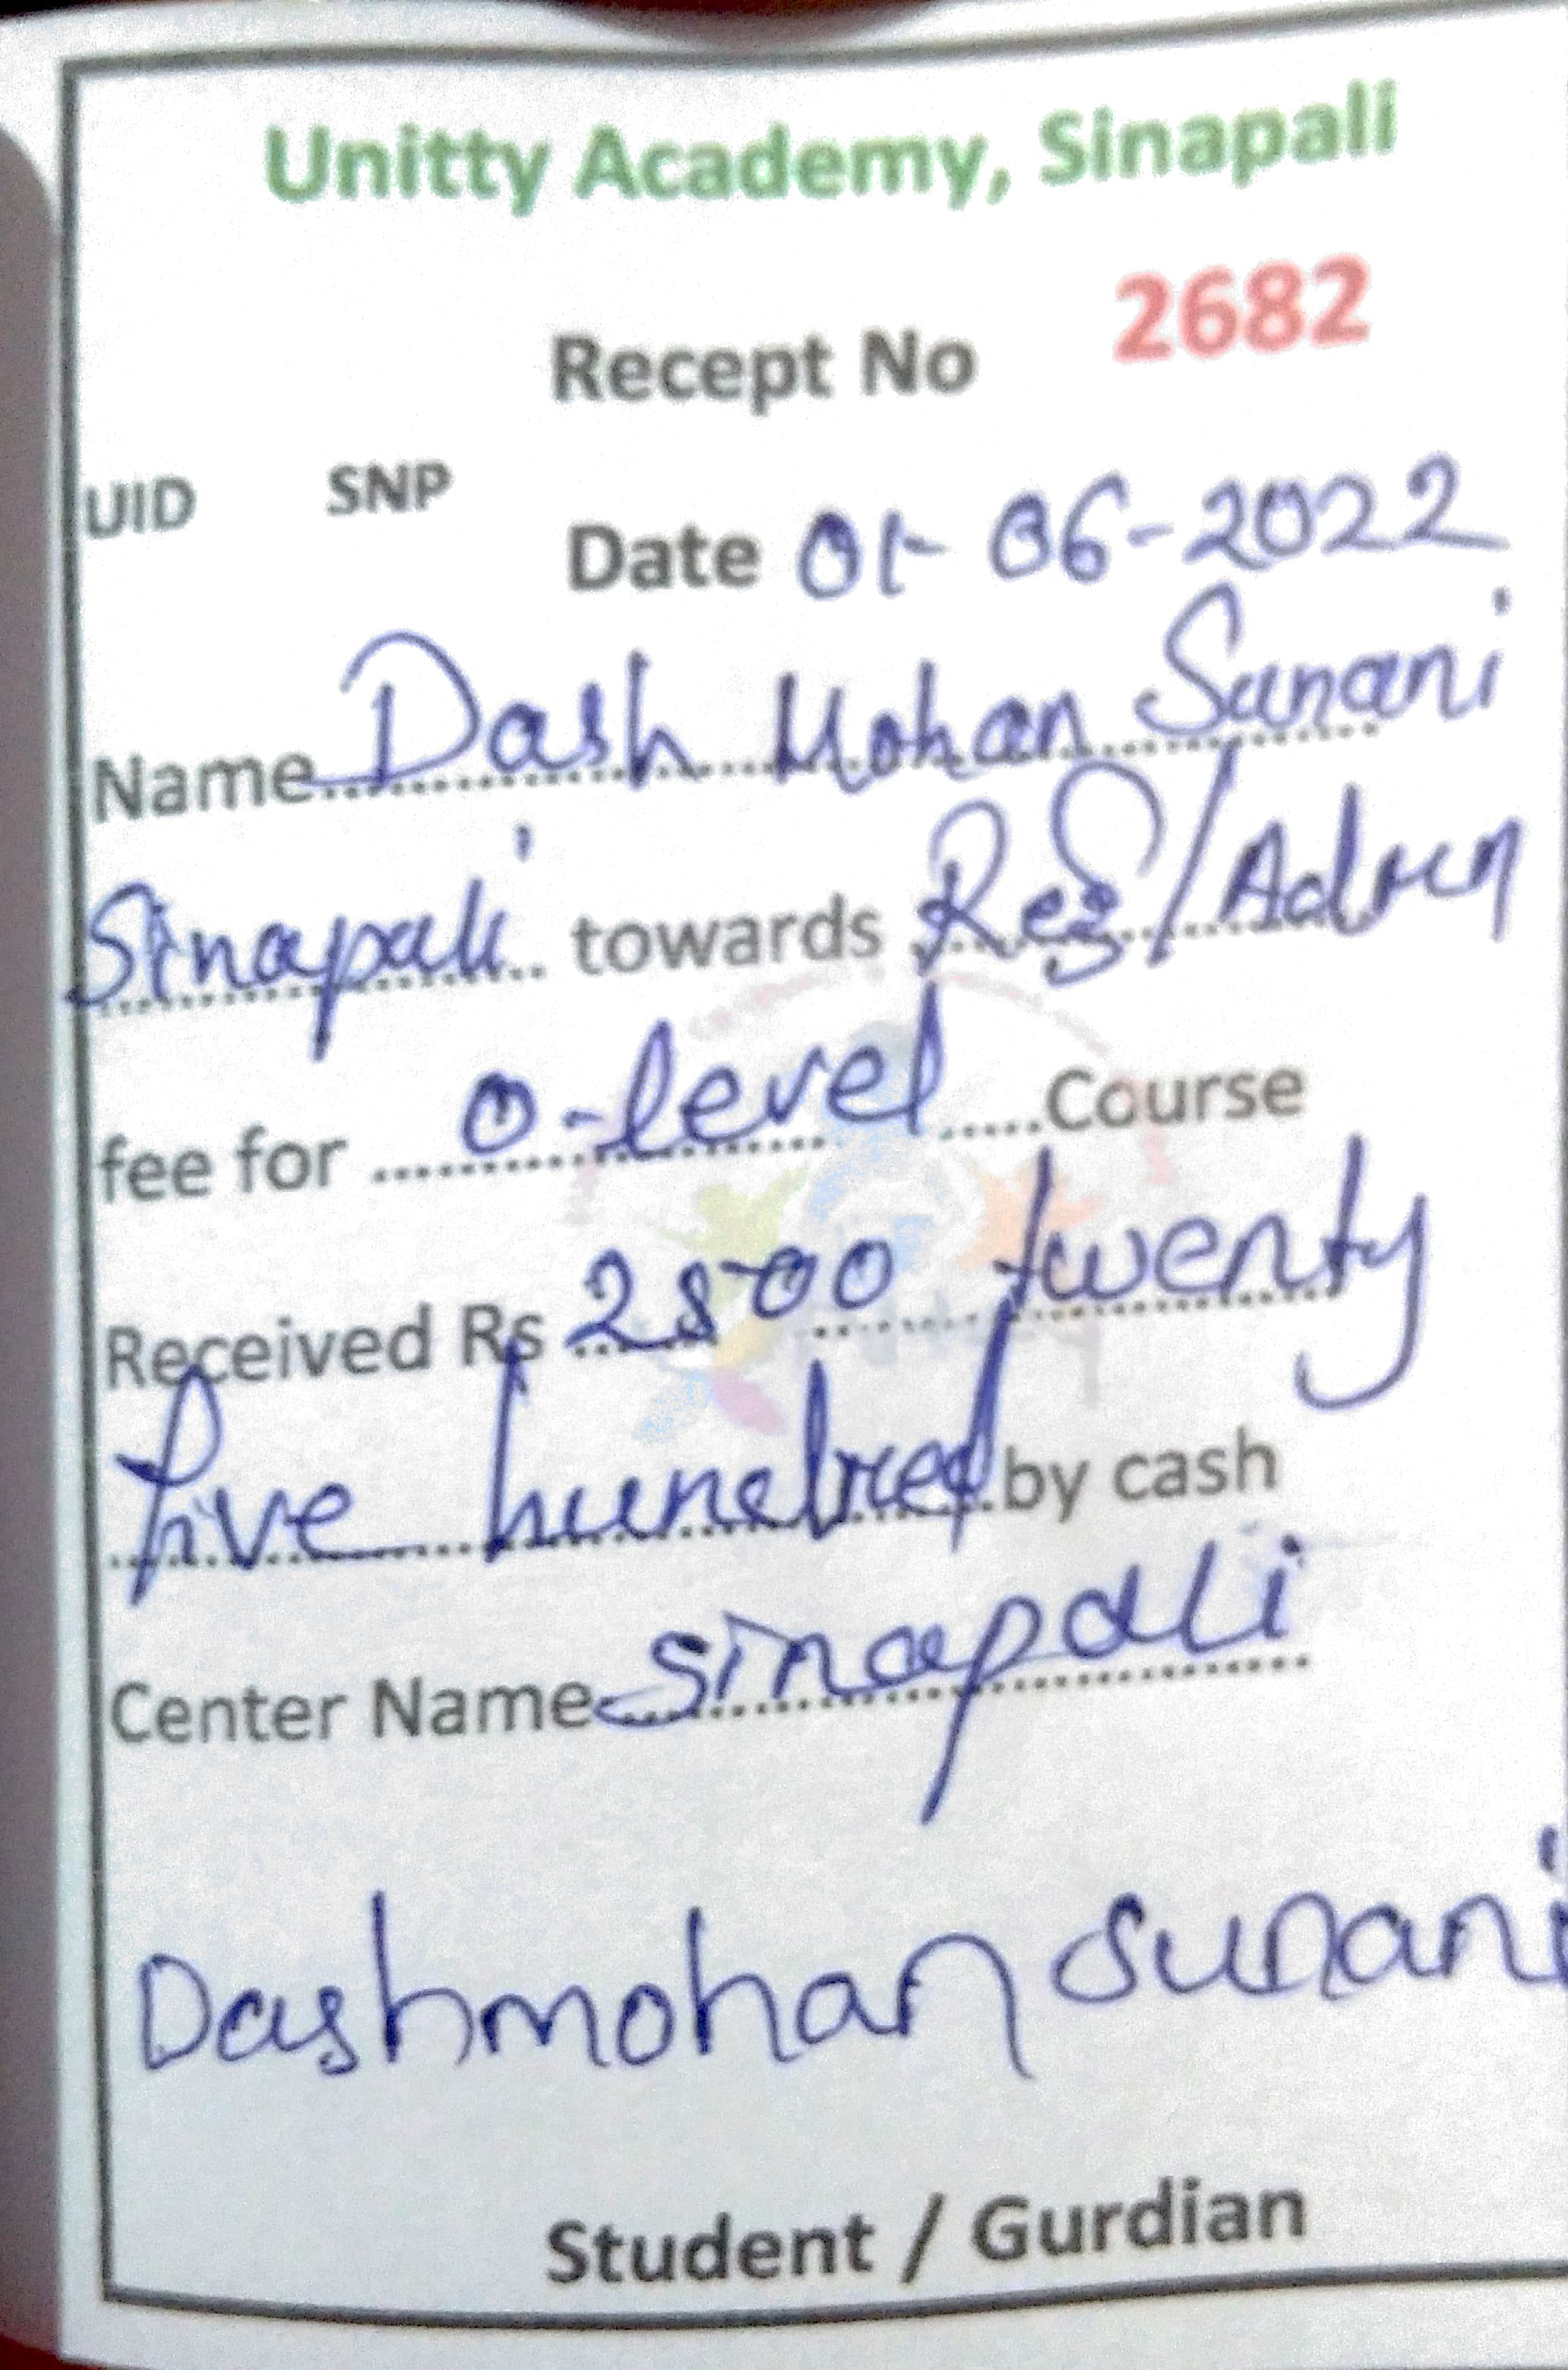 Unitty Academy, Sinapali
Recept No 2682
UID SNP
Date 01-06-2022
Name Dash Mohan Sunani
Sinapali towards Reg/Admn
fee for O-level Course
Received Rs 2500 twenty
five hundred by cash
Center Name Sinapali
Dashmohan Sunani
Student / Gurdian